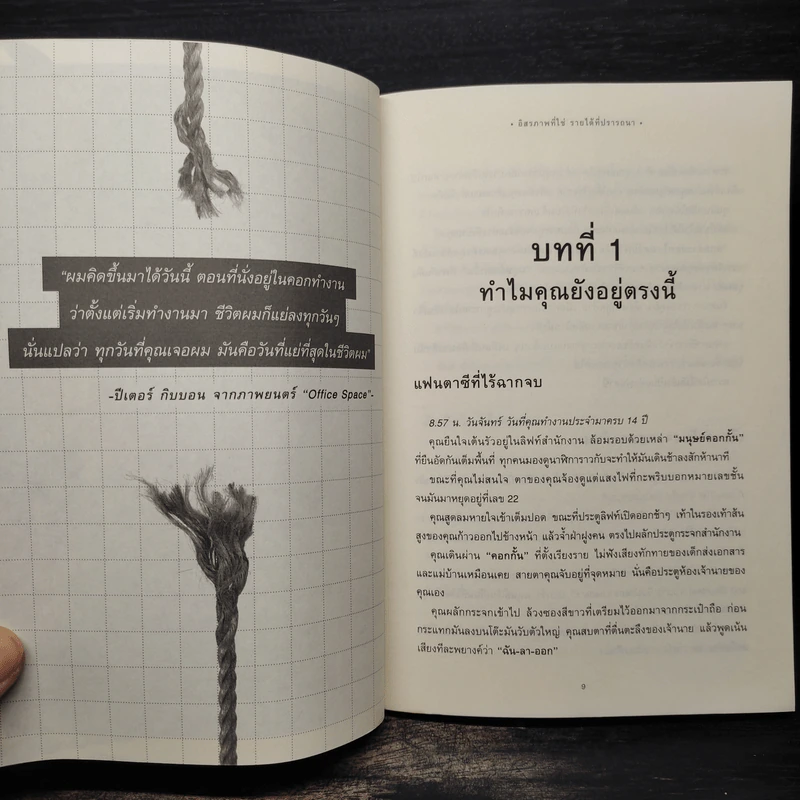 “ผมคิดขึ้นมาได้วันนี้ ตอนที่นั่งอยู่ในคอกทำงาน
ว่าตั้งแต่เริ่มทำงานมา ชีวิตผมก็แย่ลงทุกวันๆ
นั่นแปลว่า ทุกวันที่คุณเจอผม มันคือวันที่แย่ที่สุดในชีวิตผม”
-ปีเตอร์ กิบบอน จากภาพยนตร์ “Office Space”-
• อิสรภาพที่ใช่ รายได้ที่ปรารถนา •
บทที่ 1
ทำไมคุณยังอยู่ตรงนี้
แฟนตาซีที่ไร้ฉากจบ
8.57 น. วันจันทร์ วันที่คุณทำงานประจำมาครบ 14 ปี
คุณยืนใจเต้นรัวอยู่ในลิฟท์สำนักงาน ล้อมรอบด้วยเหล่า “มนุษย์คอกกั้น”
ที่ยืนอัดกันเต็มพื้นที่ ทุกคนมองดูนาฬิการาวกับจะทำให้มันเดินช้าลงสักห้านาที
ขณะที่คุณไม่สนใจ ตาของคุณจ้องดูแต่แสงไฟที่กะพริบบอกหมายเลขชั้น
จนมันมาหยุดอยู่ที่เลข 22
คุณสูดลมหายใจเข้าเต็มปอด ขณะที่ประตูลิฟท์เปิดออกช้าๆ เท้าในรองเท้าส้น
สูงของคุณก้าวออกไปข้างหน้า แล้วจ้ำฝ่าฝูงคน ตรงไปผลักประตูกระจกสำนักงาน
คุณเดินผ่าน “คอกกั้น” ที่ตั้งเรียงราย ไม่ฟังเสียงทักทายของเด็กส่งเอกสาร
และแม่บ้านเหมือนเคย สายตาคุณจับอยู่ที่จุดหมาย นั่นคือประตูห้องเจ้านายของ
คุณเอง
คุณผลักกระจกเข้าไป ล้วงซองสีขาวที่เตรียมไว้ออกมาจากกระเป๋าถือ ก่อน
กระแทกมันลงบนโต๊ะมันวับตัวใหญ่ คุณสบตาที่ตื่นตะลึงของเจ้านาย แล้วพูดเน้น
เสียงทีละพยางค์ว่า “ฉัน-ลา-ออก”
9